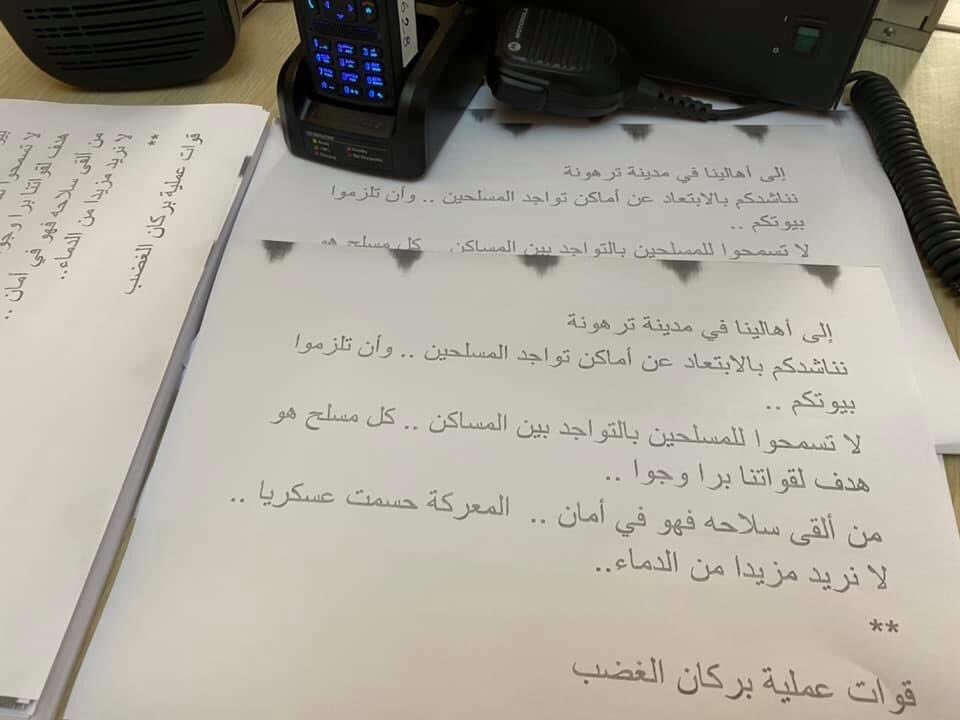 إلى أهالينا في مدينة ترهونة
نناشدكم بالابتعاد عن أماكن تواجد المسلحين .. وأن تلزموا
بيوتكم ..
لا تسمحوا للمسلحين بالتواجد بين المساكن .. كل مسلح هو
هدف لقواتنا برا وجوا ..
من ألقى سلاحه فهو في أمان .. المعركة حسمت عسكريا ..
لا نريد مزيدا من الدماء..
**
قوات عملية بركان الغضب
إلى أهالينا في مدينة ترهونة
نناشدكم بالابتعاد عن أماكن تواجد المسلحين .. وأن تلزموا
بيوتكم ..
لا تسمحوا للمسلحين بالتواجد بين المساكن .. كل مسلح هو
لا تسمحوا
هدف لقواتنا برا وجوا
من ألقى سلاحه فهو في أمان ..
لا نريد مزيدا من الدماء..
**
قوات عملية بركان الغضب
628